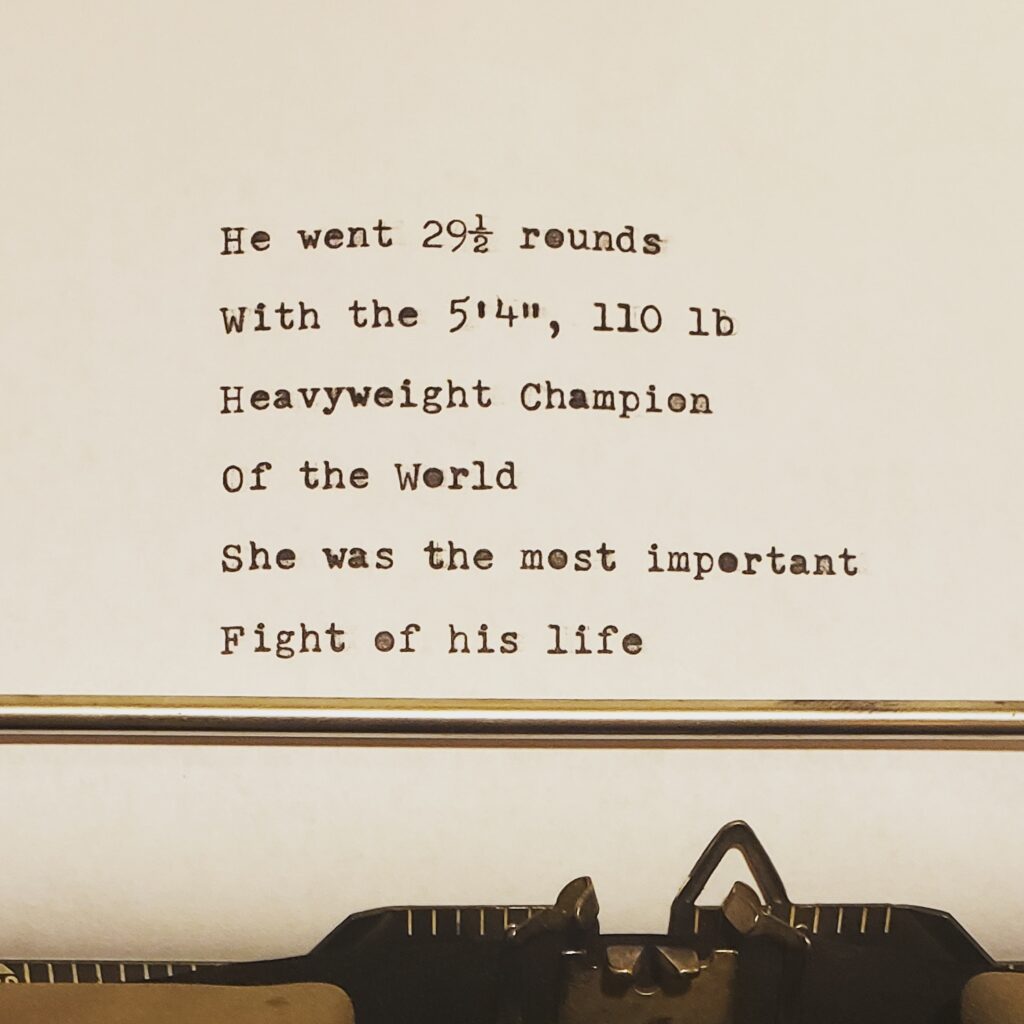 He went 29½ rounds
With the 5'4", 110 lb
Heavyweight Champion
Of the World
She was the most important
Fight of his life